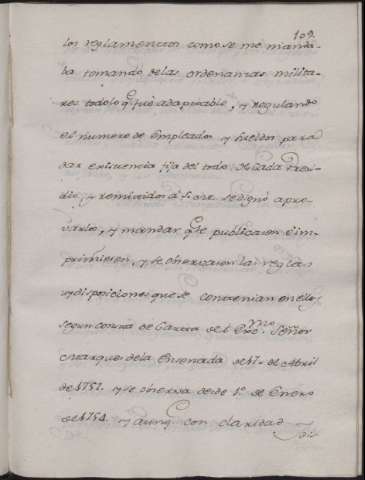 109.
los reglamentos como se me manda-
ba tomando delas ordenanzas milita-
res todo lo q.e fué adaptable, y regulando
el numero de empleados y sueldos para
dar existencia fija del todo de cada Presi-
dio; y remitidos á S. M. se dignó apro-
varlos, y mandar q.e se publicasen é im-
primiesen, y se observasen las reglas
y disposiciones que se contenian en ellos
segun consta de Carta de el Exc.mo Señor
Marques dela Ensenada de 17 de Abril
de 1751. y se observa desde 1.o de Enero
de 1754. y aunq.e con claridad